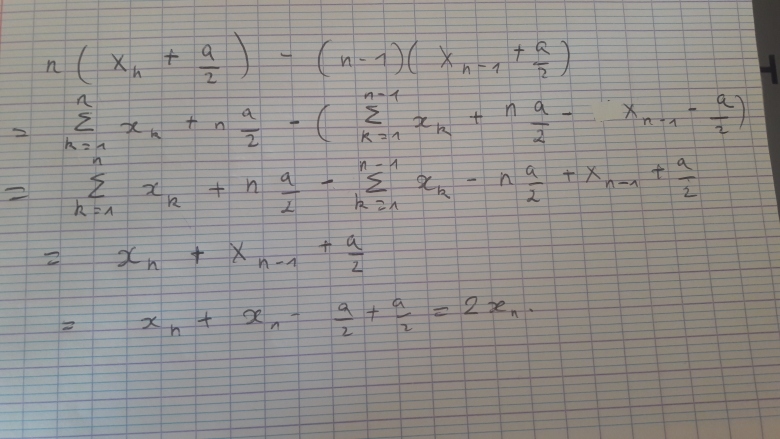 n ( X_n + a/2 ) - (n-1)( X_{n-1} + a/2 )
= \sum_{k=1}^{n} x_k + n a/2 - ( \sum_{k=1}^{n-1} x_k + n a/2 - X_{n-1} - a/2 )
= \sum_{k=1}^{n} x_k + n a/2 - \sum_{k=1}^{n-1} x_k - n a/2 + X_{n-1} + a/2
= x_n + X_{n-1} + a/2
= x_n + x_n - a/2 + a/2 = 2 x_n.